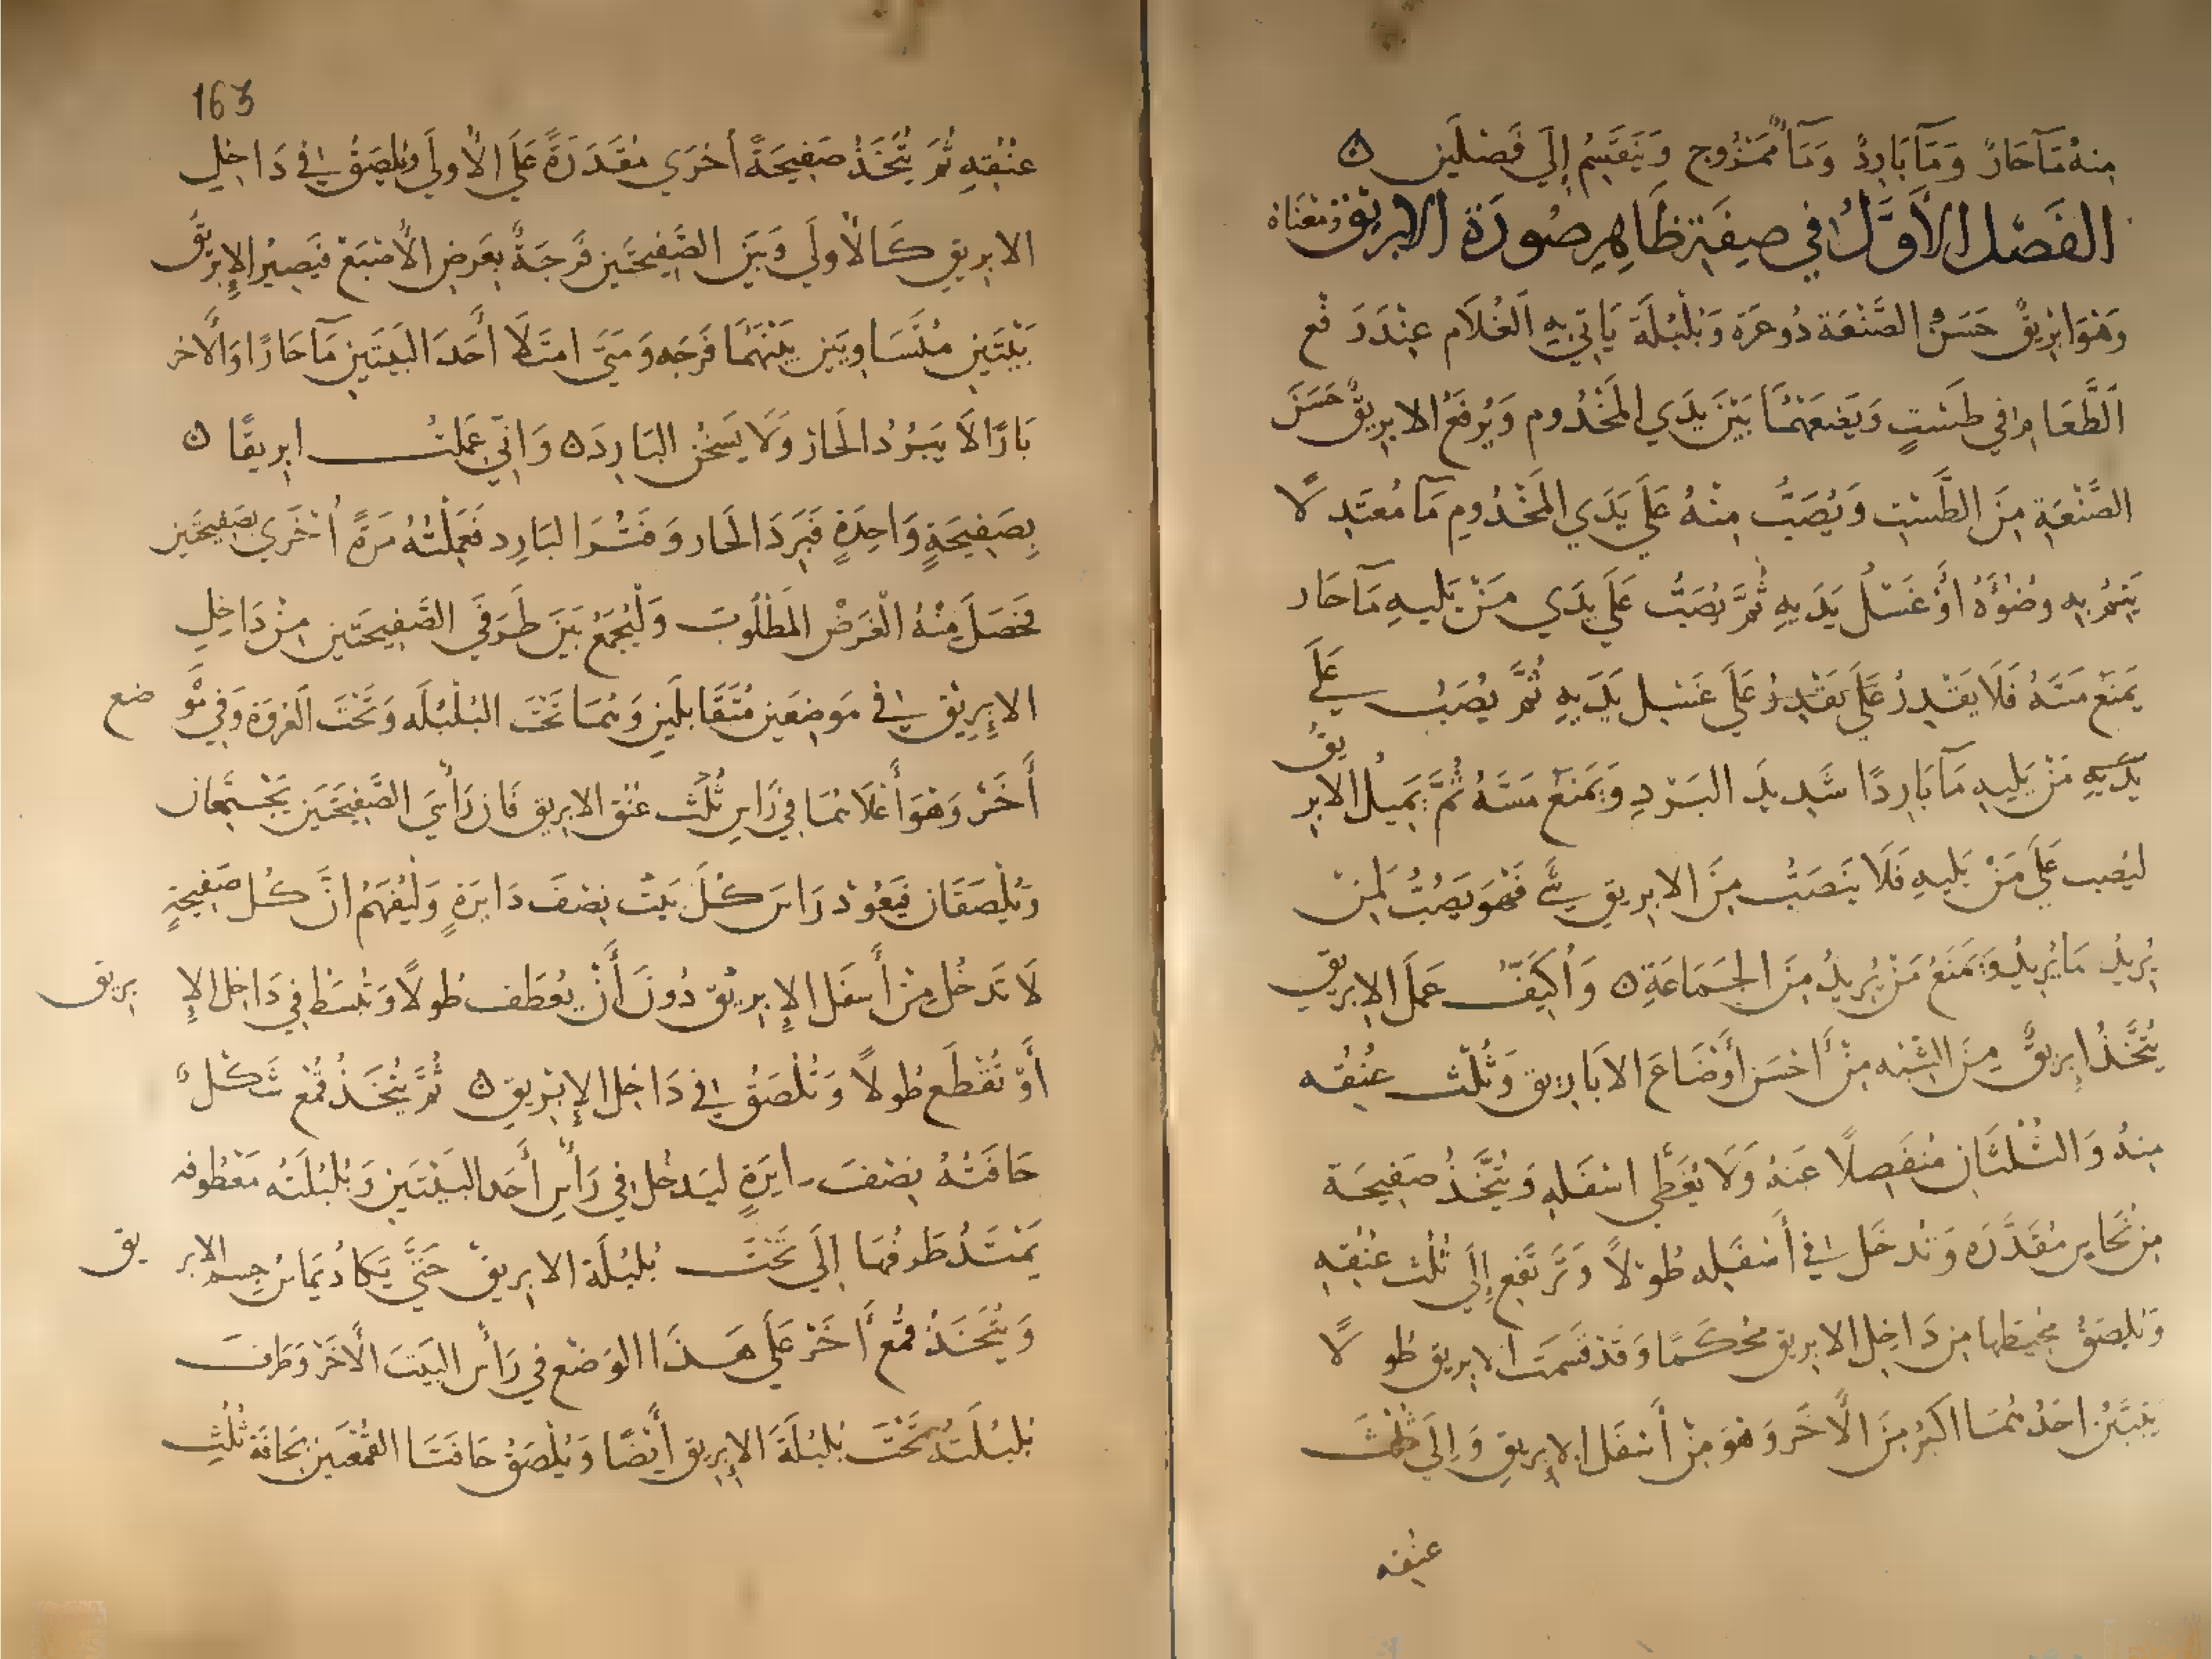 منهُ مَآ حَارٌ وَمَآ بَارِدٌ وَمَآ مَمْزُوج وَيَنقَسِمُ إِلَي فَصْلَين ن
الفَصْل الأَوَّلُ في صِفَةِ ظَاهِرِ صُورَة الابريق وَمَعْنَاهُ
وَهُوَ ابْرِيقٌ حَسَنُ الصَّنْعَة ذُو عرَوة وَبُلْبُلَة يَاتي بِهِ الغُلَام عِنْدَ رَفْع
الَطَّعَام في طَسْتٍ وَيَضَعهُمَا بَيْنَ يَدَي المَخْدُوم وَيُرفَعُ الابريقُ حَسَن
الصَّنْعَةِ مِنَ الطَّسْتِ وَيُصَبُّ مِنْهُ عَلَي يَدَي المَخْدُومِ مَآ مُعتَدِلًا
يَتِمُّ بِهِ وضُوءَهُ أَوْ غَسْلُ يَدَيهِ ثُمَّ يُصَبُّ عَلَي يَدَي مَنْ يَليهِ مَآ حَار
يَمنَعْ مَسَّهُ فَلَا يَقْدِرُ عَلَى يَقْدِرُ عَلَى غَسْلِ يَدَيهِ ثُمَّ يُصَبُّ عَلَي
يَدَيهِ مَنْ يَلِيهِ مَآ بَارِدًا شَدِيدَ البَرْدِ وَيَمنَعْ مَسَّهُ ثُمَّ يَمِيلُ الابريقُ
ليَصُب عَلَي مَنْ يَليهِ فَلَا يَنصَبُّ مِنَ الابريق شَي فَهُوَ يَصُبُّ لِمَنْ
يُرِيدُ مَا يُرِيدُ وَيَمنَعُ مَنْ يُرِيدُ مِنَ الجَمَاعَةِ ن وَأُكَيِّفُ عَمَلَ الابريق
يُتَّخَذُ إِبرِيقٌ مِنَ الشَّبَه مِنْ أَحْسَن أَوْضَاعَ الاَبَارِيق وَثُلْث عُنُقه
مِنهُ وَالثُلثَانِ مُنفَصِلًا عَنهُ وَلَا يُغَطَّي اسْفَلِهِ وَيُتَّخَذُ صَفِيحَة
مِنْ نُحَاس مُقَدَّرَه وَتُدخَل في أَسْفَلِه طُولًا وَتَرتَفِع إِلَي ثُلْث عُنُقِهِ
وَيُلصَقُ مُحِيطها مِن دَاخِل الابريق مُحْكَمًا وَقَدْ قَسَمَت الابريق طُولًا
بَيْتَيْنِ احَدُهُمَا اكبَرُ مِنَ الَاخَر وَهُوَ مِنْ أَسْفَل الإِبريق وَإِلَي ثُلْث
عنقه
163
عنُقهِ ثُمَ يُتَّخَذُ صَفِيحَةً أُخرَي مُقَدَرَةً عَلَى الأُولَي وَيُلصَقُ في دَاخِلِ
الابريق كَالأُولَي وَبَيْنَ الصَّفِيحَتَين فُرجَةً بِعَرضِ الأُصبَع فَيَصِيرُ الإِبريَق
بَيْتَينِ مُتَسَاويَين بَيْنَهُمَا فَرجَه وَمَتَى امتَلَا أَحَدَ البَيتَينِ مَآ حَارًا وَالاخر
بَارًا لَا يَبرُدُ الحَار وَلَا يَسخنُ البَارِدَ ن وَانِّي عَمِلتُ ابريقًا ن
بِصَفِيحَةٍ وَاحِدَةٍ فَبَرَدَ الحَار وَفَتُرَ البَارِد فَعَمِلْتُهُ مَرةً أُخْرَي بصَفِيحَتَين
فَحَصَلَ مِنْهُ الغَرَضُ المَطْلُوبَ وَلْيُجمَعُ بَيْنَ طَرَفَي الصَّفِيحَتَين مِنْ دَاخِلِ
الابِرِيقِ في مَوضِعَين مُتَقَابلَينِ وَهُمَا تَحْتَ البُلْبُلَه وَتَحْتَ الَعْروَة وَفي مَوضع
أَخَرْ وَهُوَ أَعْلَاهُمَا في رَاسِ ثُلْث عُنق الابريق فَان رَأسَي الصَّفِيحَتَين يَجْتَمِعَان
وَيُلْصَقَان فَيَعُوْد رَاسَ كُلَ بَيْت نِصْفَ دَايرَةٍ وَلْيُفهَمُ انَّ كُل صَفِيحَةٍ
لَا تَدخُل مِنْ أَسفَل الإِبريْق دُونَ أَنْ يُعطَف طُولًا وَتُبسَط في دَاخِل الإِبريق
أَوْ تُقطَع طُولًا وَتُلْصَقُ في دَاخِل الإِبْرِيق ن ثُمَّ يُتَّخَذُ قُمْع شَكْل
حَافَتُهُ نِصْفَ دايرَةٍ ليَدخُل في رَأسِ أَحَد البَيْتَين وَبُلبُلَتُه مَعْطُوفه
يَمْتَدُ طَرفُهَا إِلَي تَحْت بُلبُلَة الابريق حَتَّي يَكَاد يُمَاسُ جِسم الابريق
وَيُتَّخَذُ قُمْع أَخَر عَلَي هَذَا الوَضْع في رَأسِ البَيتَ الأَخَرْ وَطَرفَ
بُلبُلَتهُ تَحْتَ بُلبُلَة الإِبرِيق أَيْضًا وَيُلْصَقُ حَافَتَا القُمْعَين بحَافَة ثُلْثِ